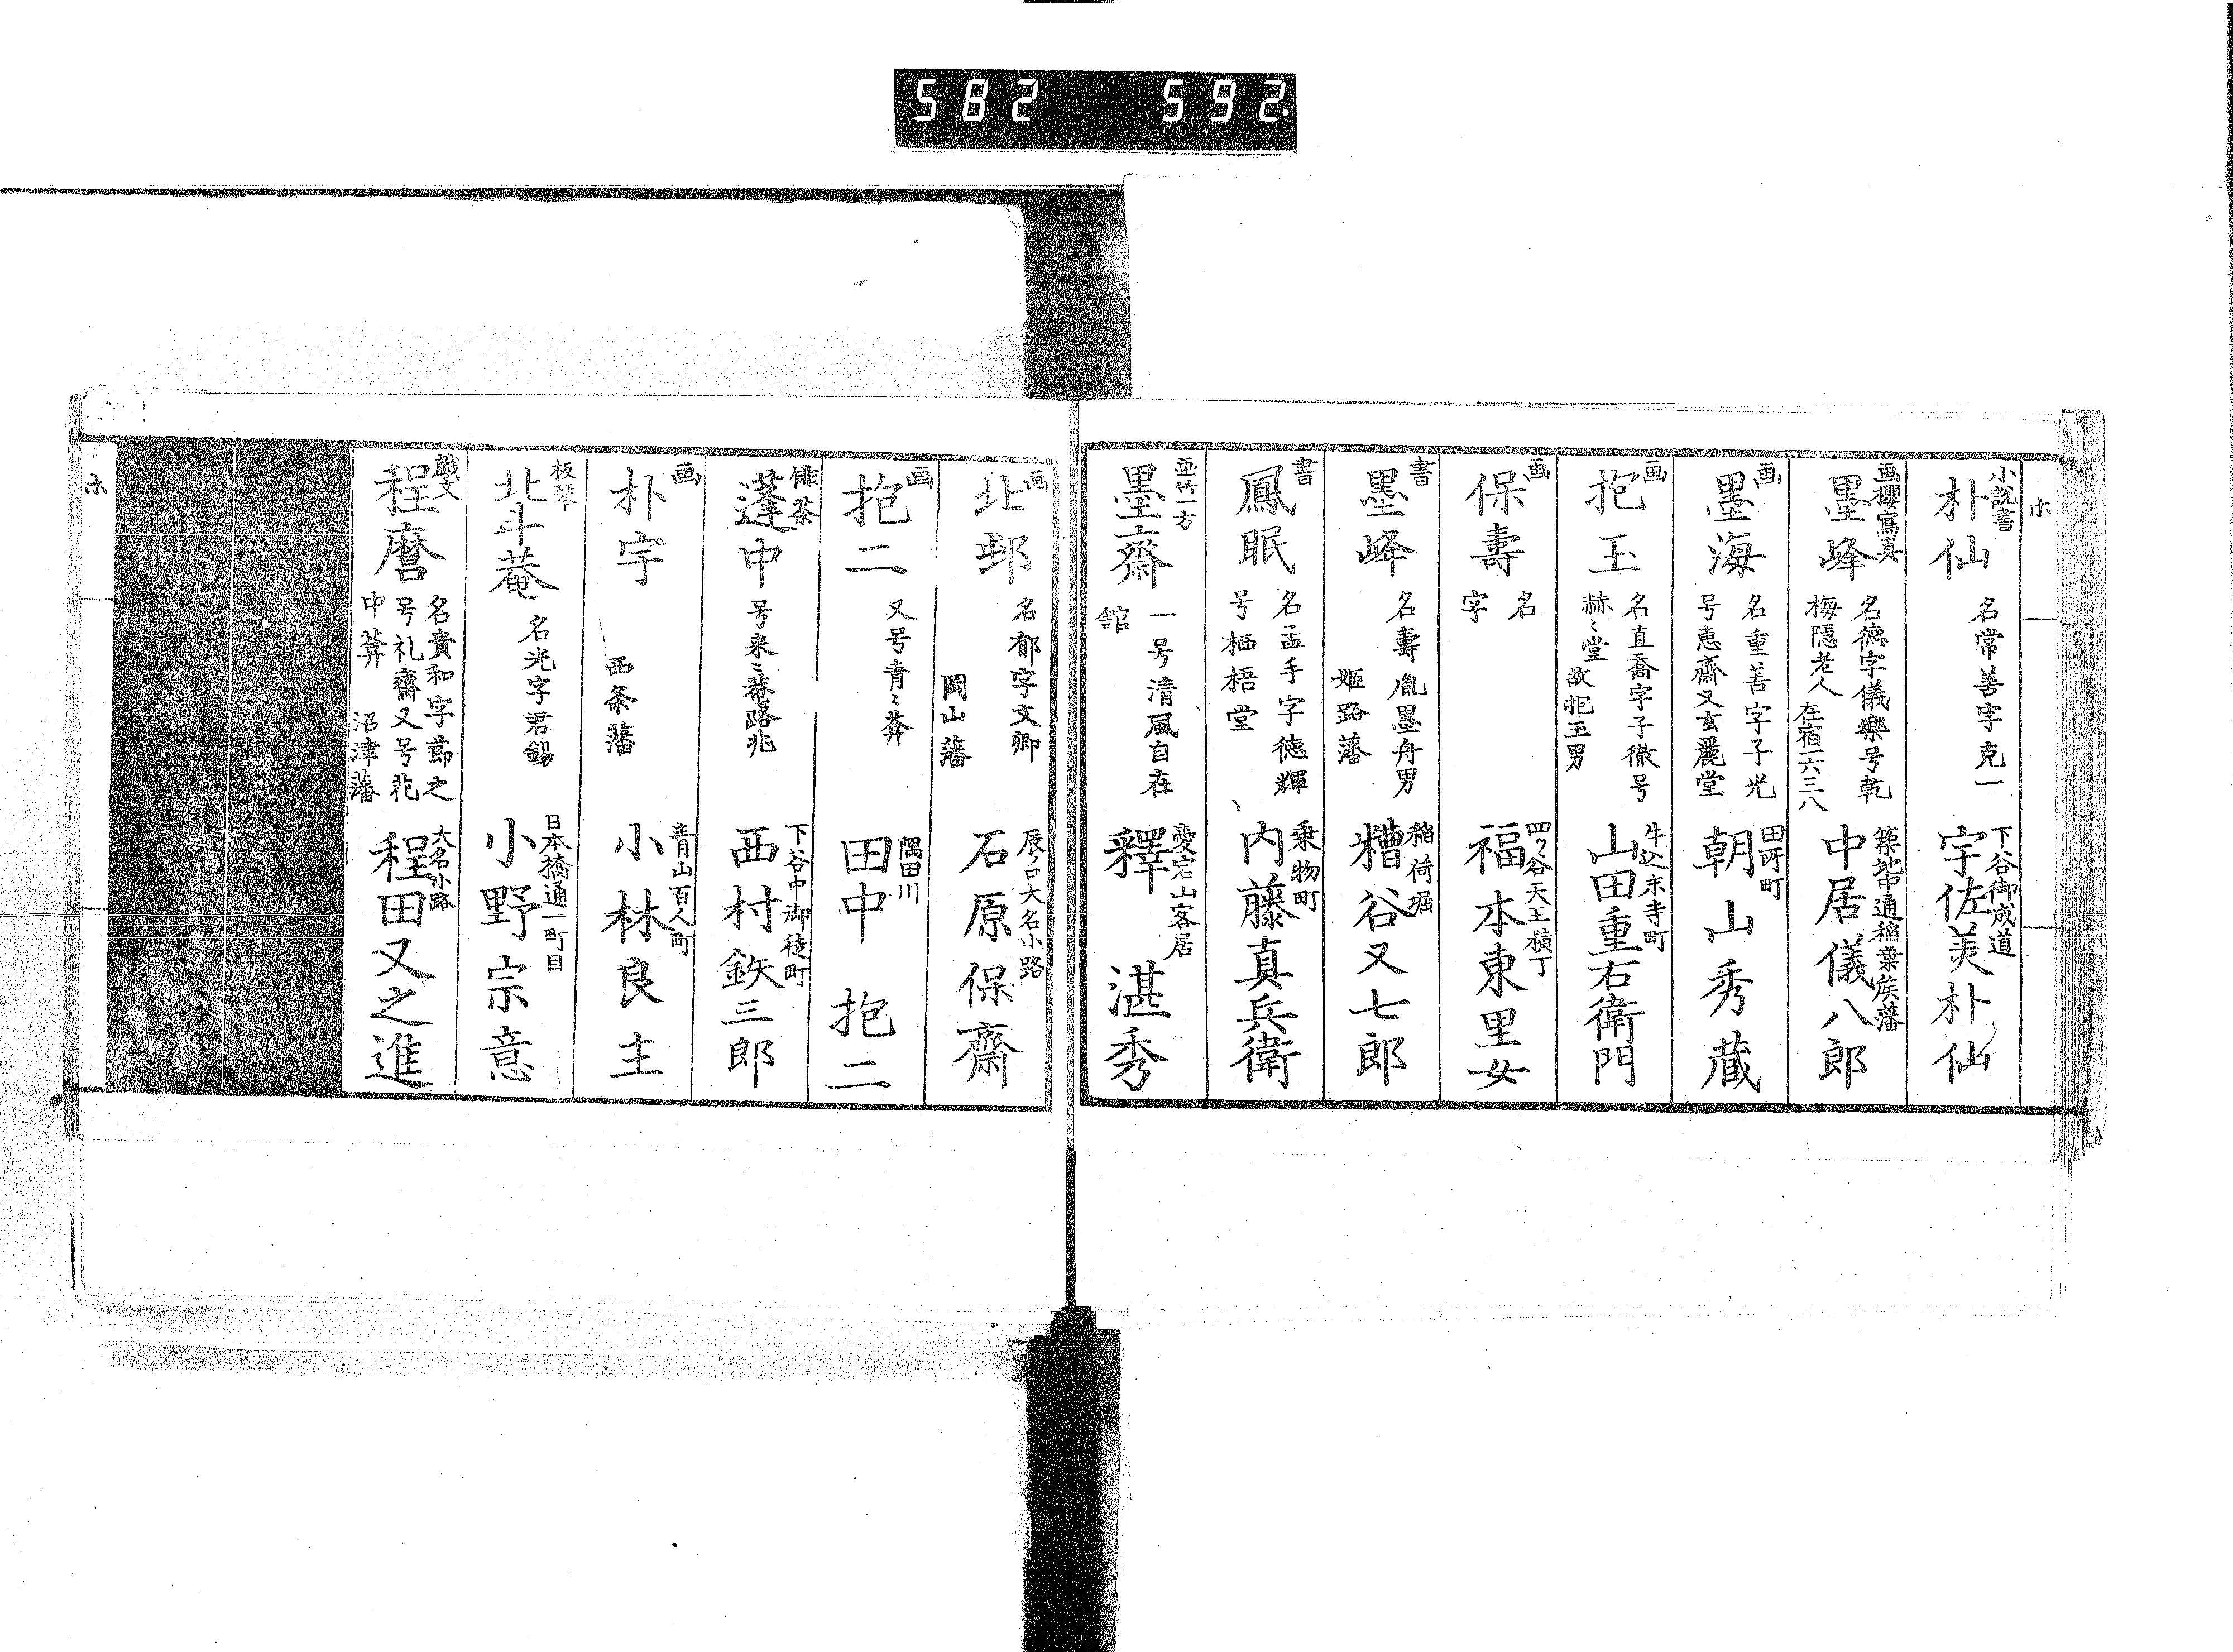 582 592.
ホ
小説書
朴仙
名常善字克一
下谷御成道
宇佐美朴仙
画櫻寫真
墨峰
名徳字儀樂号乾
梅隠老人
在宿一六三八
築地中通稲葉矦藩
中居儀八郎
画
墨海
名重善字子光
号恵齋又玄麗堂
田所町
朝山秀蔵
画
抱玉
名直喬字子徹号
赫〻堂
故抱玉男
牛込末寺町
山田重右衛門
画
保壽
名
字
四ツ谷天王横丁
福本東里女
書
墨峰
名壽胤墨舟男
姫路藩
稲荷堀
糟谷又七郎
書
鳳眠
名孟手字徳輝
号栖梧堂
乗物町
内藤真兵衛
画竹一方
墨齋
一号清風自在
舘
愛宕山客居
釋湛秀
画
北邨
名郁字文卿
岡山藩
辰ノ口大名小路
石原保齋
画
抱二
又号青〻莾
隅田川
田中抱二
俳茶
蓬中
号来〻菴路兆
下谷中御徒町
西村鉃三郎
画
朴宇
西条藩
青山百人町
小林良主
板琴
北斗菴
名光字君錫
日本橋通一町目
小野宗意
戯文
程麿
名貴和字節之
号礼齋又号花
中莾
沼津藩
大名小路
程田又之進
ホ